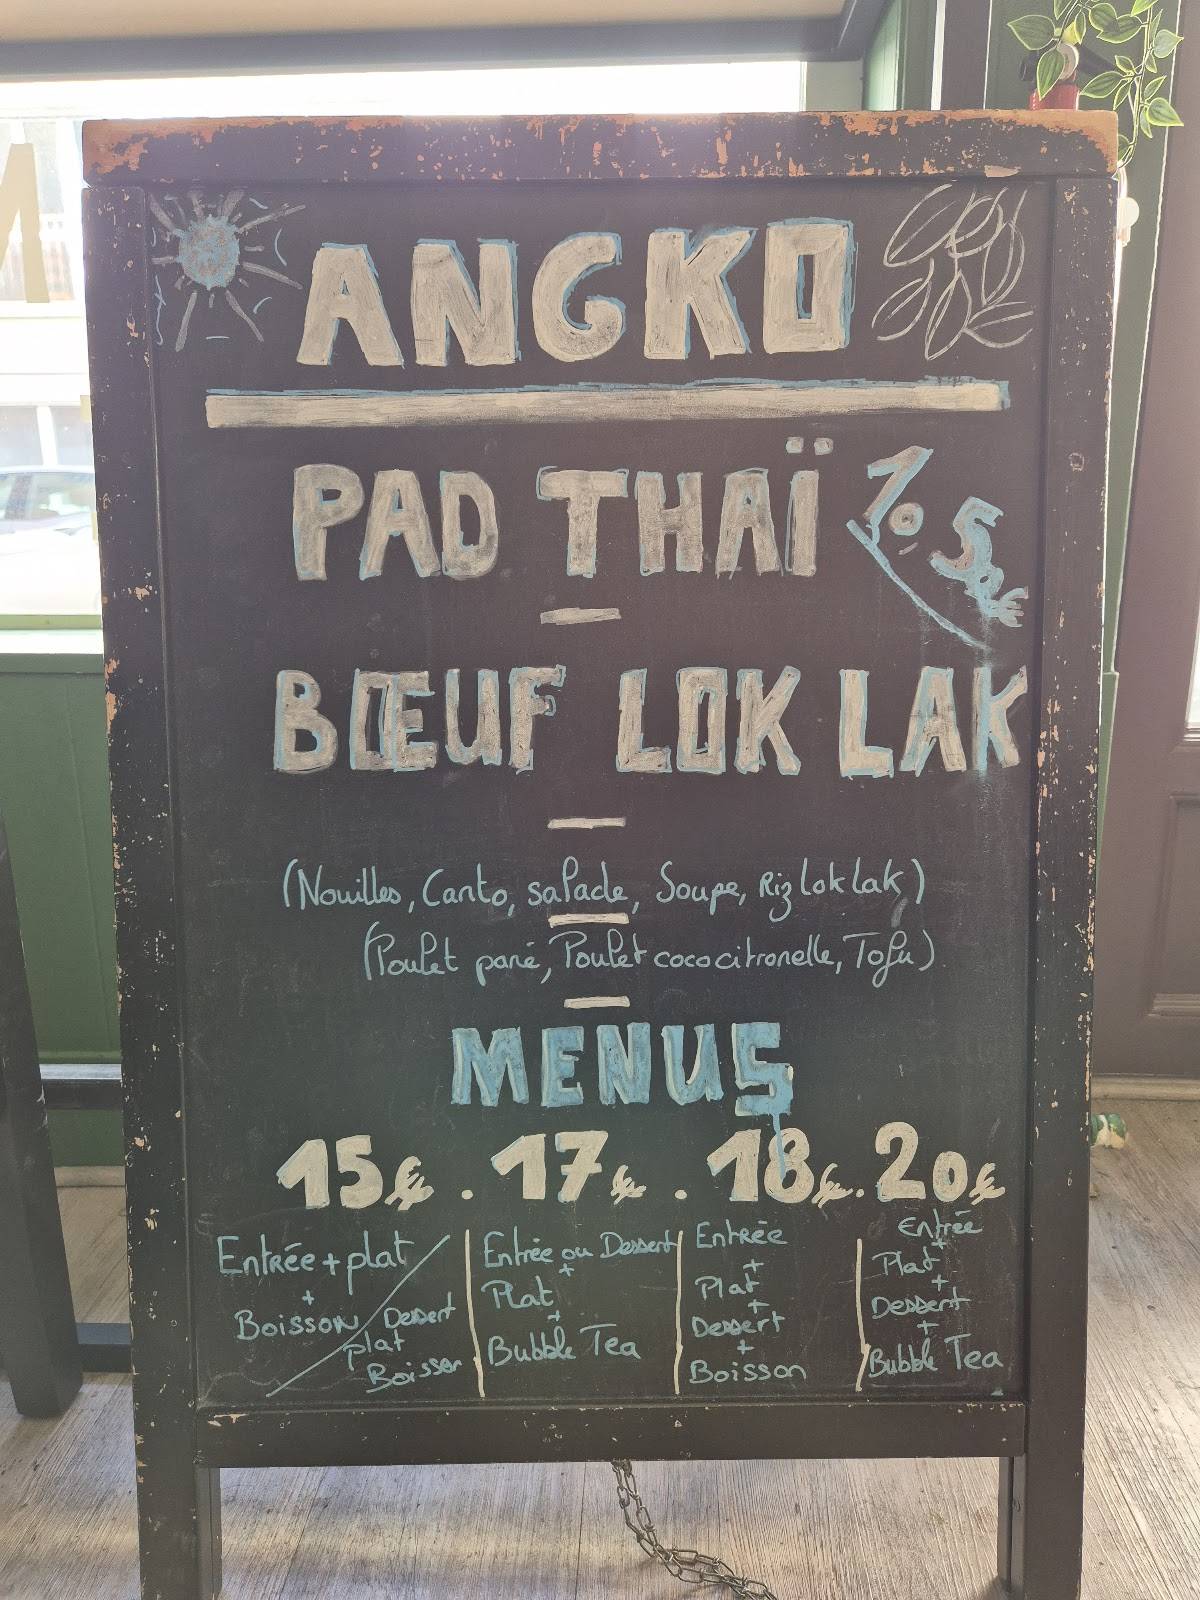 ANGKO
PAD THAÏ 10.5€
BŒUF LOK LAK
(Nouilles, Canto, salade, Soupe, Riz lok lak)
(Poulet pané, Poulet coco citronelle, Tofu)
MENUS
15€ . 17€ . 18€ . 20€
Entrée + plat
+
Boisson
Dessert
plat
Boisson
Entrée ou Dessert
+
Plat
+
Bubble Tea
Entrée
+
Plat
+
Dessert
+
Boisson
Entrée
+
Plat
+
Dessert
+
Bubble Tea